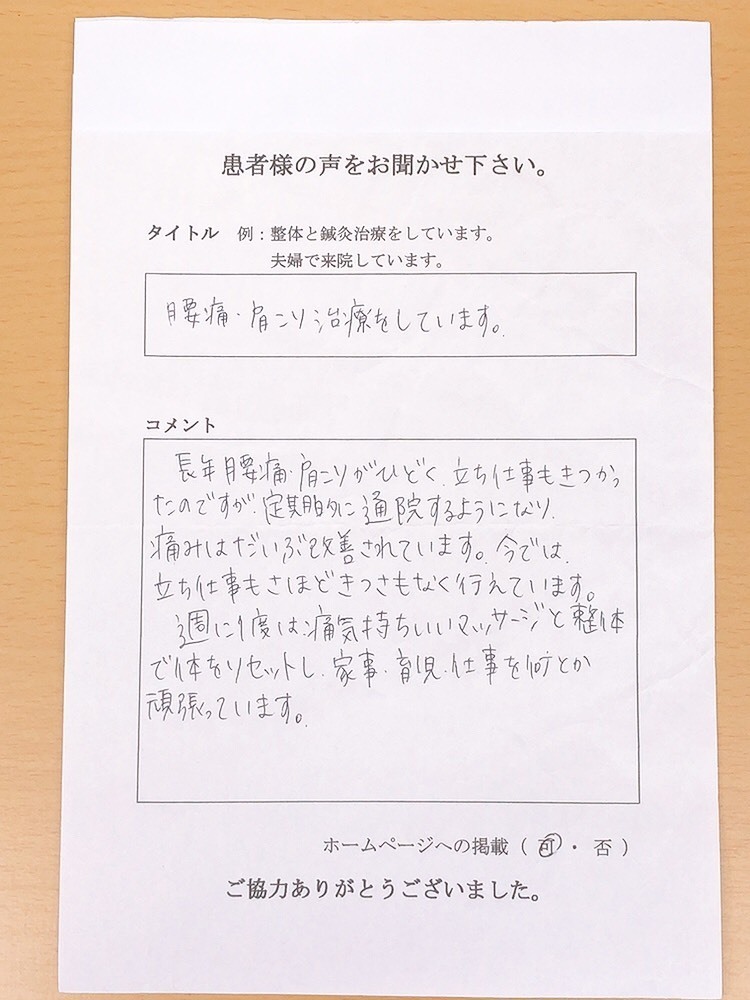 患者様の声をお聞かせ下さい。
タイトル 例：整体と鍼灸治療をしています。
夫婦で来院しています。
腰痛・肩こり治療をしています。
コメント
長年腰痛・肩こりがひどく、立ち仕事もきつかっ
たのですが、定期的に通院するようになり、
痛みはだいぶ改善されています。今では、
立ち仕事もさほどきつさもなく行えています。
週に1度は、痛気持ちいいマッサージと整体
で体をリセットし、家事・育児・仕事を何とか
頑張っています。
ホームページへの掲載（ 可 ・ 否 ）
ご協力ありがとうございました。